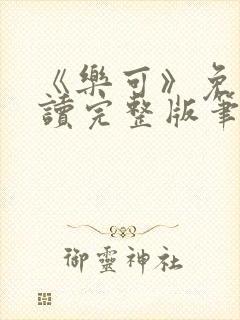 《樂可》免
讀完整版筆
御靈神社